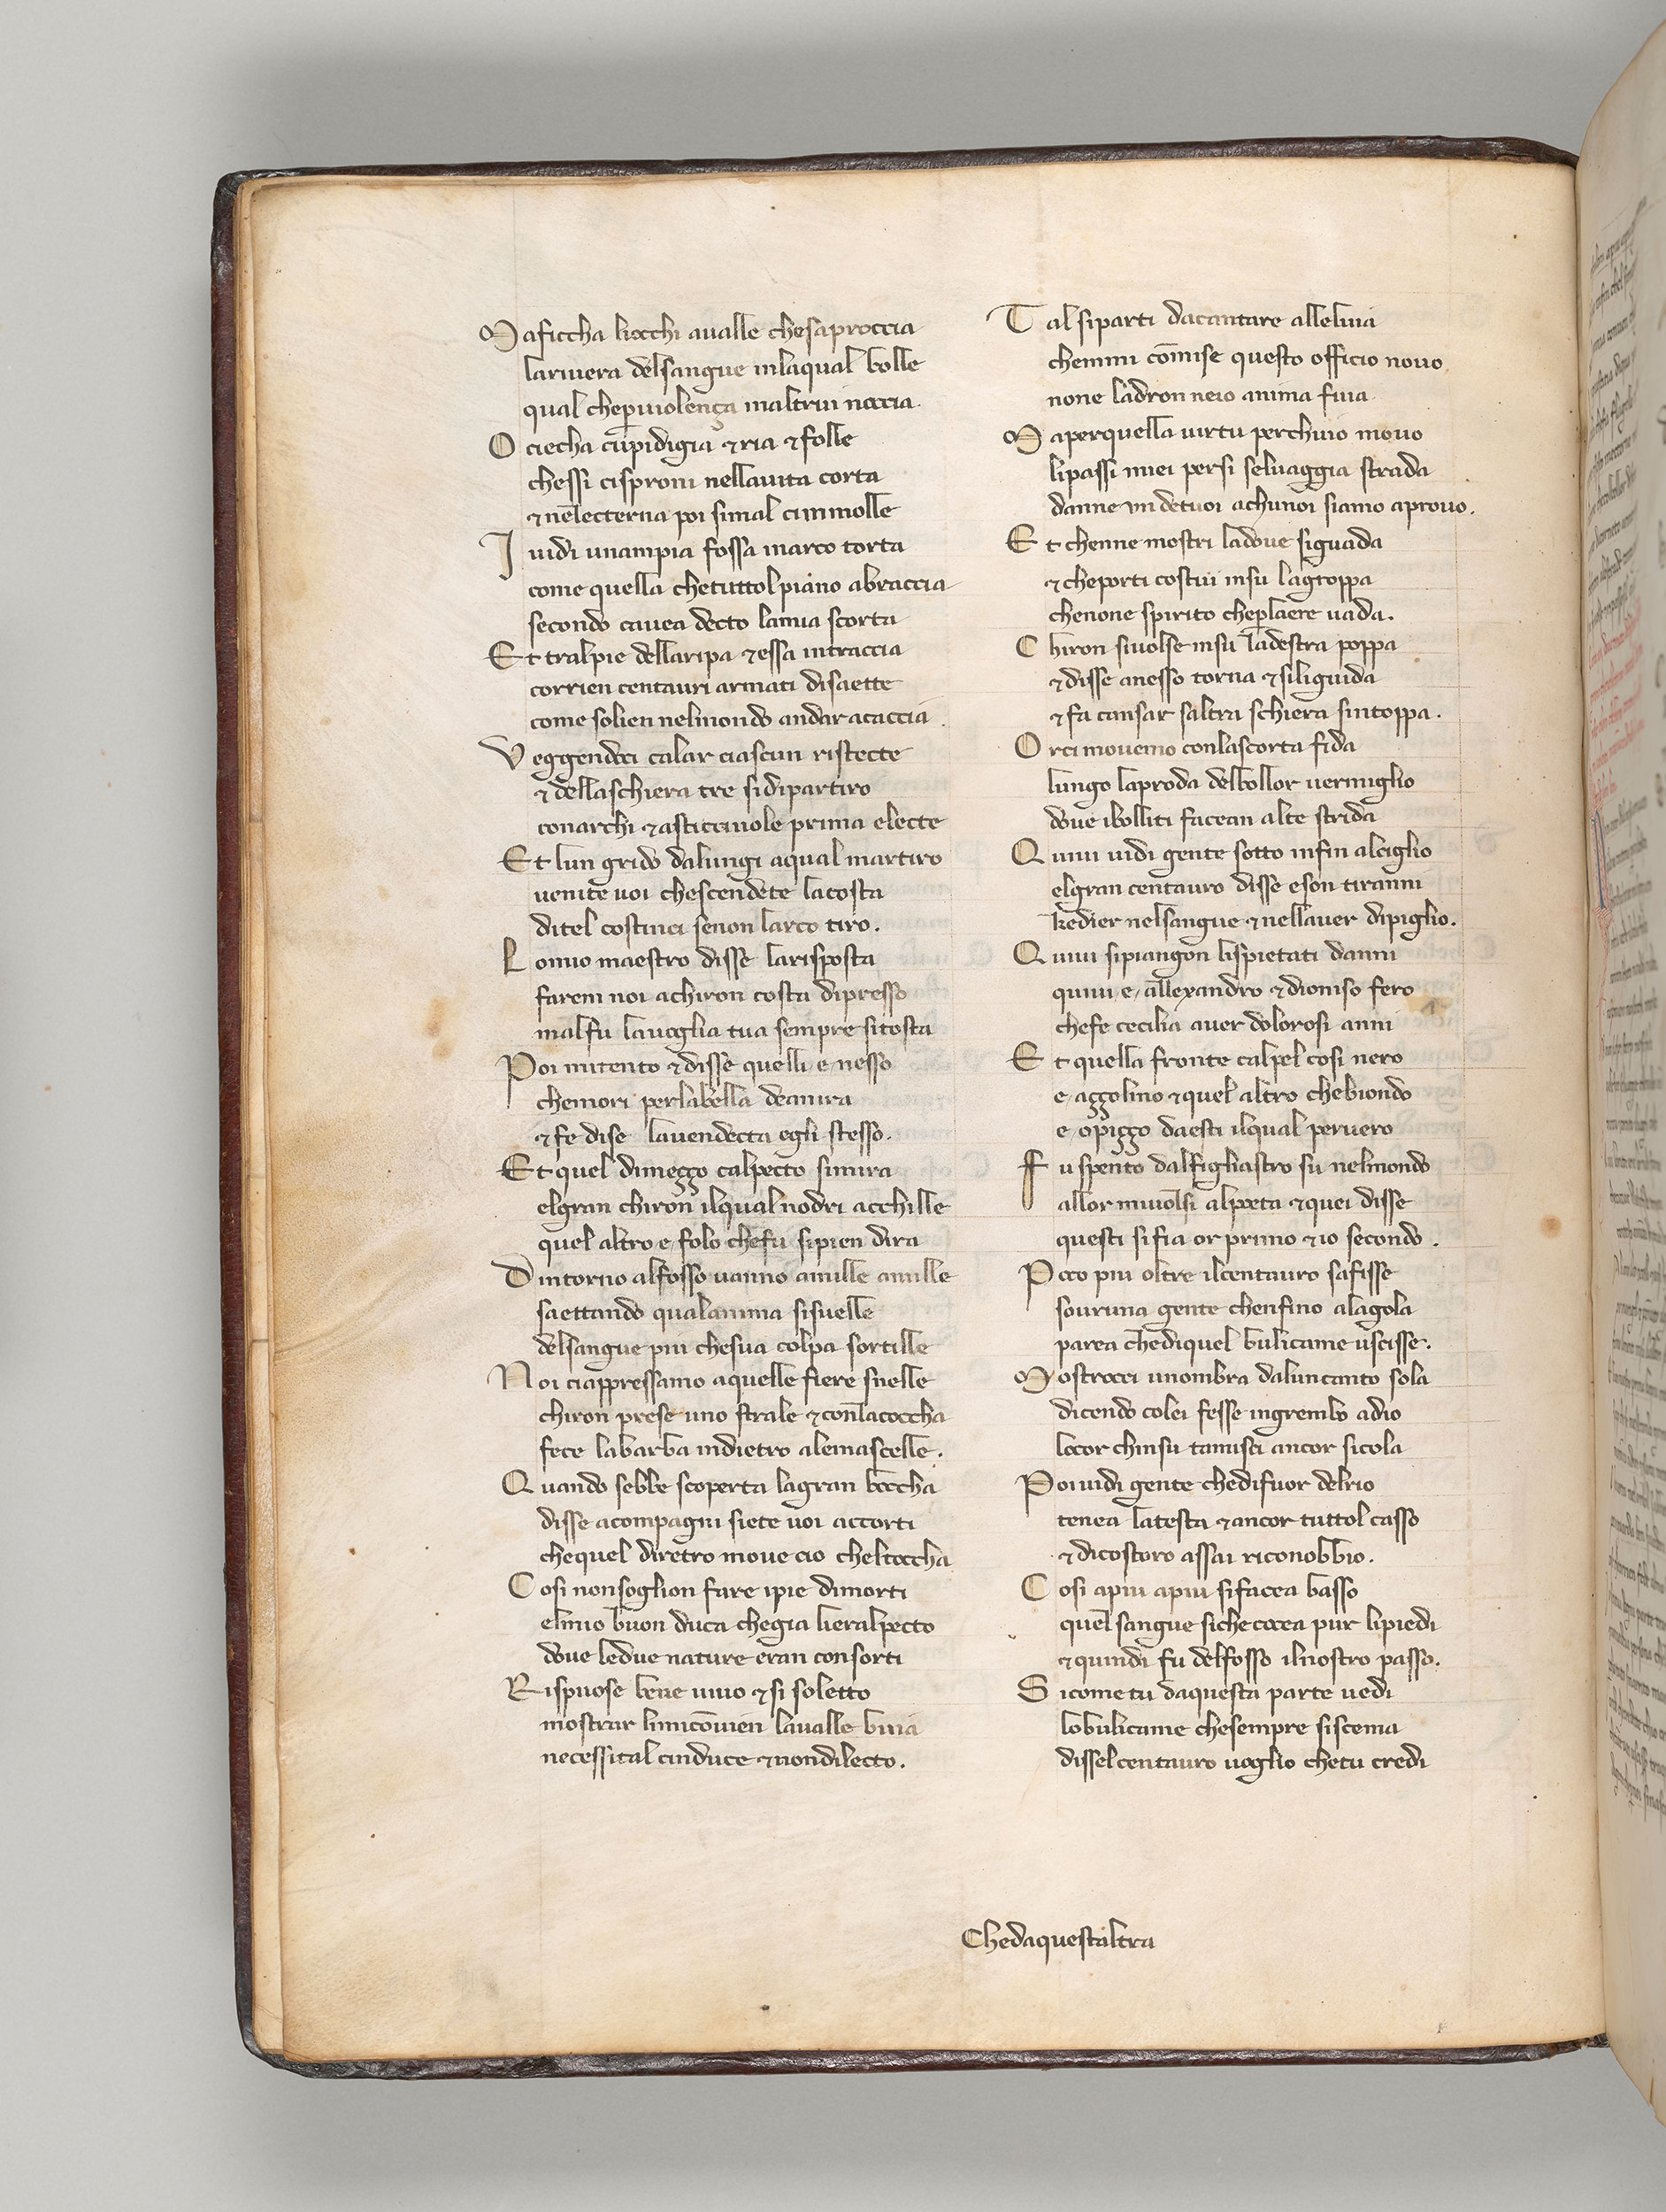 Maficcha liocchi aualle chesaproccia
lariuera delsangue inlaqual bolle
qual cheperuiolença inaltrui noccia.
O ciecha cupidigia & ria & folle
chessi cisproni nellauita corta
& nelecterna poi simal cinmolle
I uidi unampia fossa inarco torta
come quella chetuttolpiano abraccia
secondo cauea decto lamia scorta
Et tralpie dellaripa & essa intraccia
corrien centauri armati disaette
come solien nelmondo andar acaccia.
Veggendoci calar ciascun ristecte
& dellaschiera tre sidipartiro
conarchi & asticciuole prima electe
Et lun grido dalungi aqual martiro
uenite uoi chescendete lacosta
ditel costinci senon larco tiro.
Lomio maestro disse larisposta
farem noi achiron costa dipresso
malfu lauoglia tua sempre sitosta
Poi mitento & disse quelli e nesso
chemori perlabella deanira
& fe dise lauendecta egli stesso.
Et quel dimeggo calpecto simira
elgran chiron ilqual nodri acchille
quel altro e folo chefu sipien dira
Dintorno alfosso uanno amille amille
saettando qualanima sisuelle
delsangue piu chesua colpa sortille
Noi ciappressamo aquelle fiere snelle
chiron prese uno strale & conlacoccha
fece labarba indietro alemascelle.
Quando sebbe scoperta lagran boccha
disse acompagni siete uoi accorti
chequel diretro moue cio cheltoccha
Cosi nonsoglion fare ipie dimorti
elmio buon duca chegia lieralpecto
doue ledue nature eran consorti
Rispuose bene uiuo & si soletto
mostrar limiconuien laualle buia
necessital cinduce & nondilecto.
Tal siparti dacantare alleluia
chemmi comise questo officio nouo
none ladron neio anima fuia.
Maperquella uirtu perchuio mouo
lipassi miei persi seluaggia strada
danne un detuoi achunoi siamo aprouo.
Et chenne mostri ladoue siguada
& cheporti costui insu lagroppa
chenone spirito cheperlaere uada.
Chiron siuolse insu ladestra poppa
& disse anesso torna & siliguida
& fa cansar saltra schiera sintoppa.
Orci mouemo conlascorta fida
lungo laproda delbollor uermiglio
doue ibolliti facean alte strida
Quiui uidi gente sotto infin alciglio
elgran centauro disse eson tiranni
kedier nelsangue & nellauer dipiglio.
Quiui sipiangon lispietati danni
quiui e allexandro & dioniso fero
chefe cecilia auer dolorosi anni
Et quella fronte calpel cosi nero
e aggolino & quel altro chebiondo
e opiggo daesti ilqual peruero
Fu spento dalfigliastro su nelmondo
allor miuolsi alpoeta & quei disse
questi sifia or primo & io secondo.
Poco piu oltre ilcentauro safisse
souruna gente chenfino alagola
parea chediquel bulicame uscisse.
Mostrocci unombra daluncanto sola
dicendo colei fesse ingrembo adio
locor chinsu tamisci ancor sicola
Poi uidi gente chedifuor delrio
tenea latesta & ancor tuttol casso
& dicostoro assai riconobbio.
Cosi apiu apiu sifacea basso
quel sangue siche cocea pur lipiedi
& quindi fu delfosso ilnostro passo.
Sicome tu daquesta parte uedi
lobulicame chesempre siscema
disselcentauro uoglio chetu credi
Chedaquestaltra